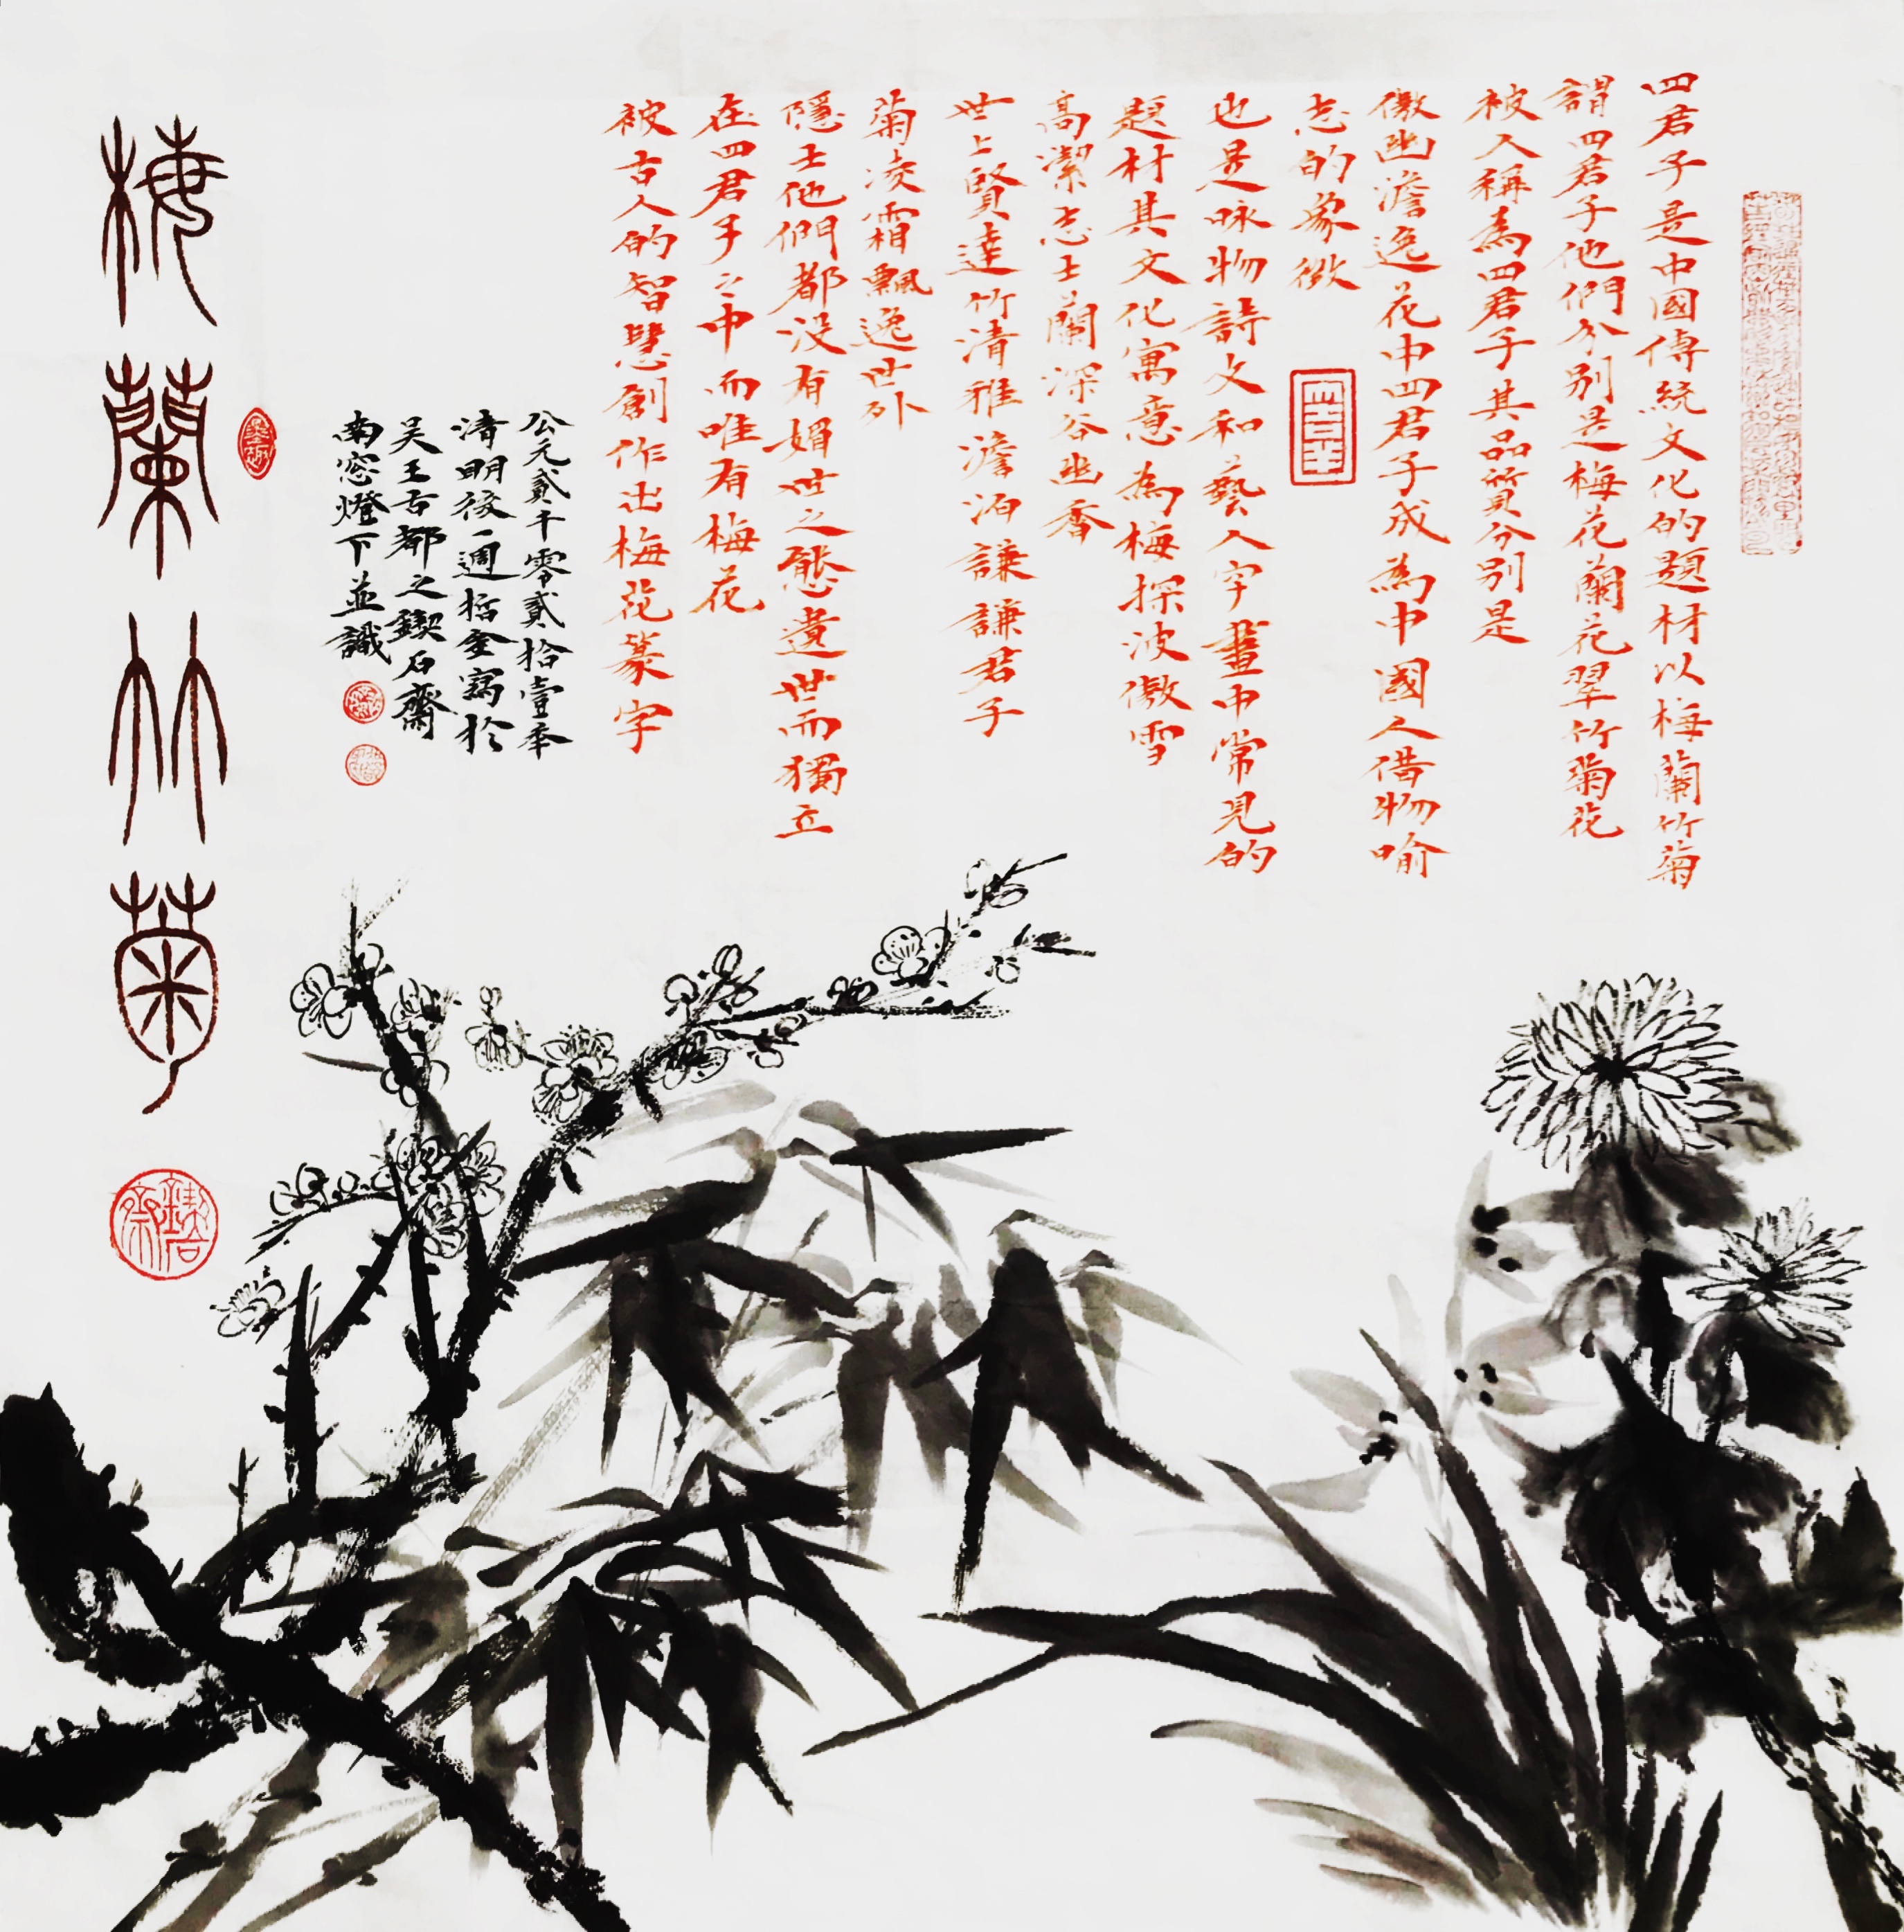 四君子是中國傳統文化的題材以梅蘭竹菊
謂四君子他們分別是梅花蘭花翠竹菊花
被人稱為四君子其品質分別是
傲幽澹逸花中四君子成為中國人借物喻
志的象徵
也是咏物詩文和藝人字畫中常見的
題材其文化寓意為梅探波傲雪
高潔志士蘭深谷幽香
世上賢達竹清雅澹泊謙謙君子
菊凌霜飄逸世外
隱士他們都没有媚世之態遺世而獨立
在四君子之中而唯有梅花
被古人的智慧創作出梅花篆字
公元貳千零貳拾壹年
清明後一週栝金寫於
吴王古都之鍥石齋
南窓燈下並識
梅蘭竹菊
鍥石齋